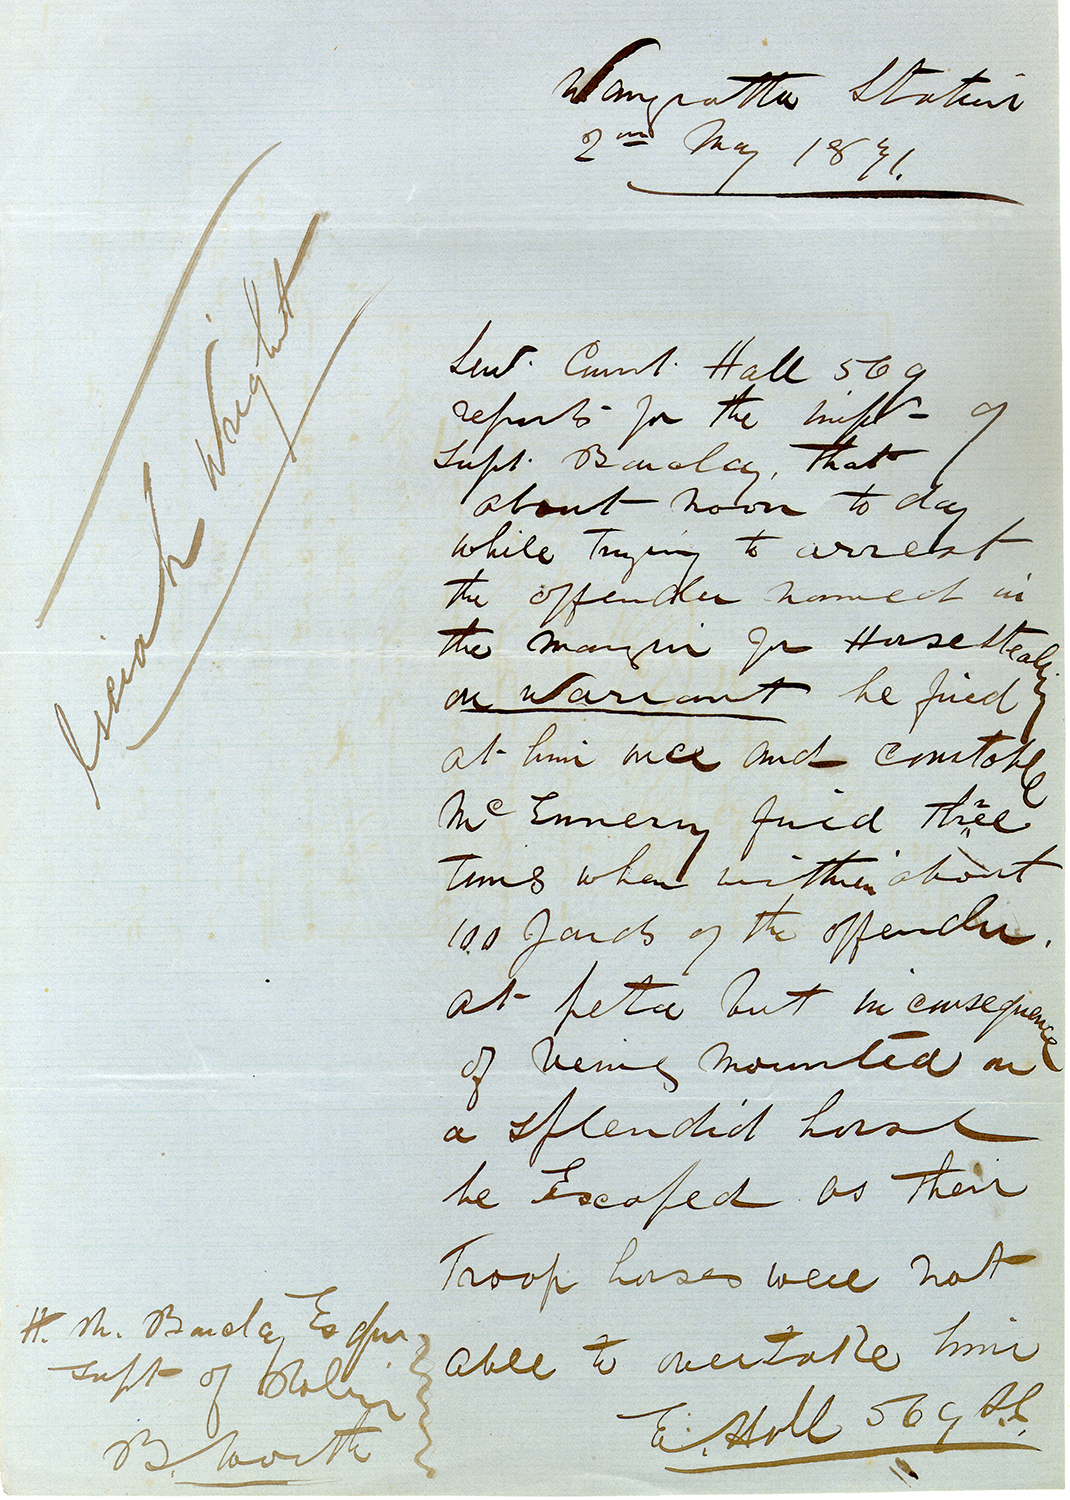 Wangratta Station
2nd May 1871.
Isaiah Wright
Senr. Const. Hall 569
reports for the inft of
Supt. Barclay, that
about noon to day
while trying to arrest
the offender named in
the margin for Horse Stealing
on Warrant he fired
at him once and constable
McEnnerny fired three
times when within about
100 yards of the offender.
at but in consequence
of being mounted on
a splendid horse
he Escaped as their
Troop horses were not
able to overtake him
E. Hall 569 S.C.
H. M. Barclay Esquire
Supt of Police
B. Worth